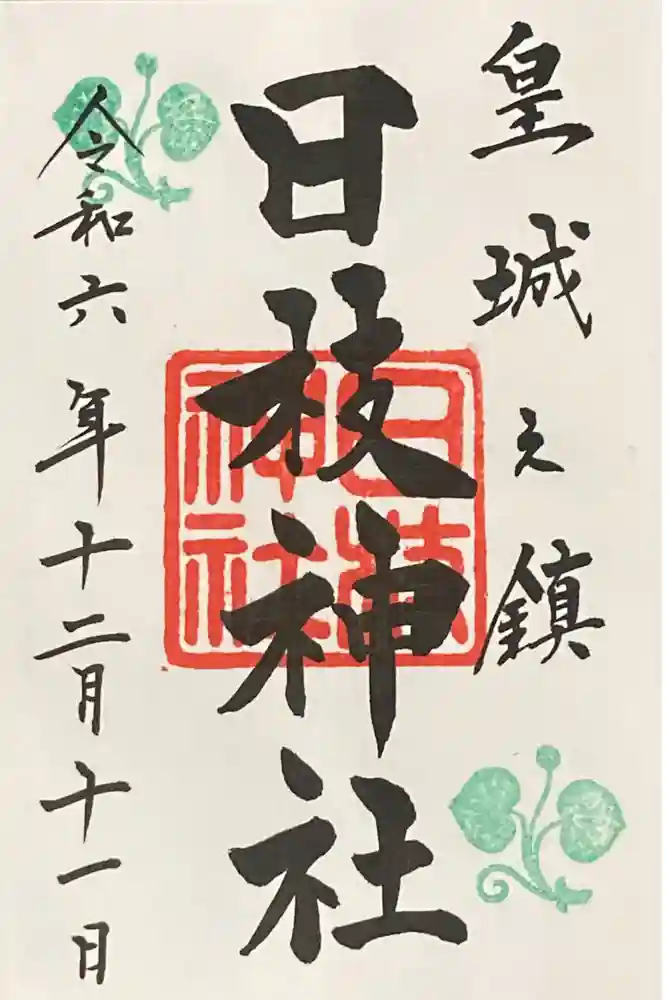 皇城之鎮
日枝神社
令和六年十二月十一日